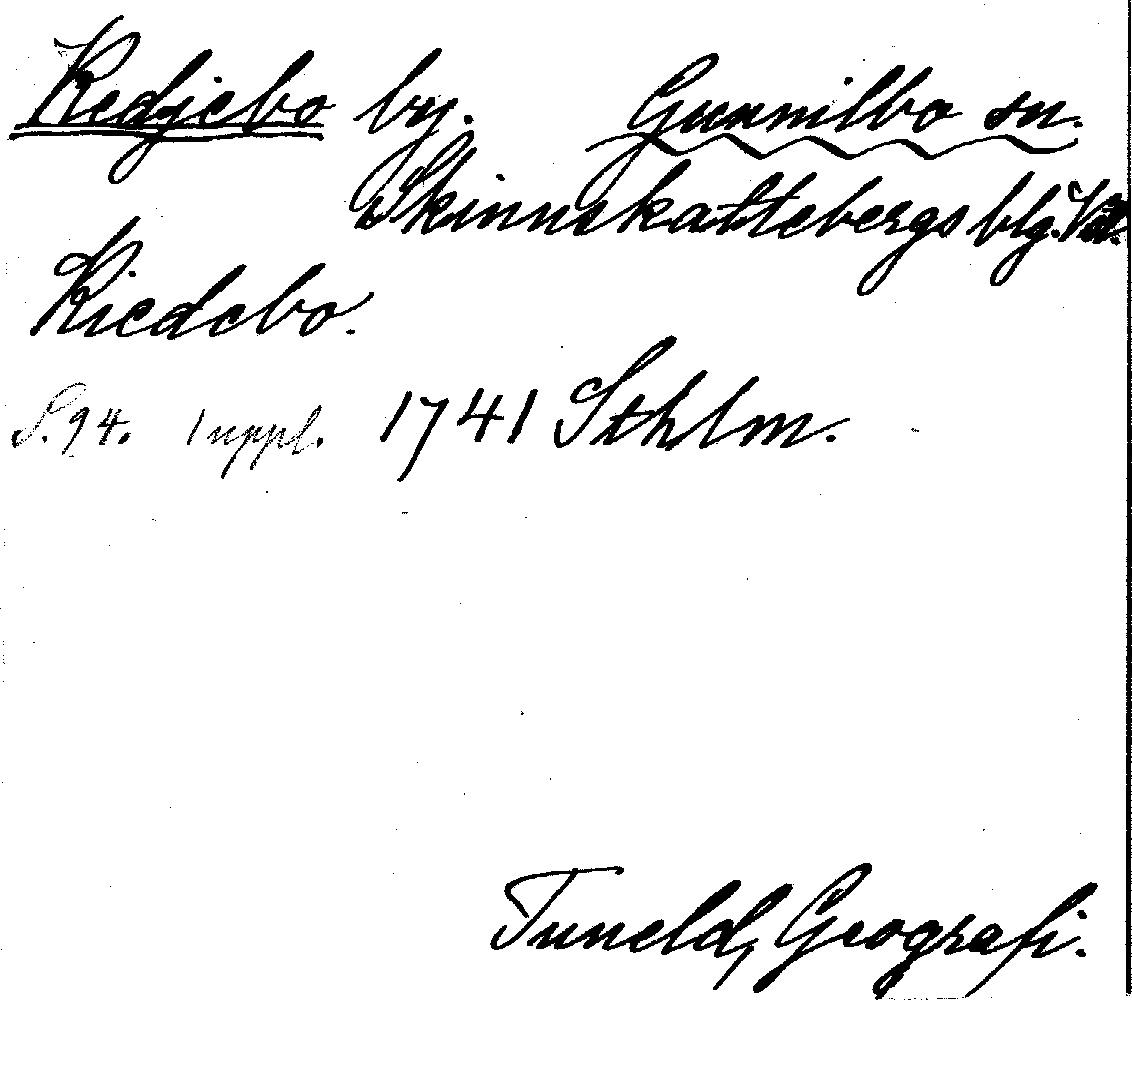 Kedjebo by. Gunnilbo sn.
Skinnskattebergs blg.
Kiedebo.
S. 94. 1 uppl. 1741 Sthlm.
Tuneld, Geografi.